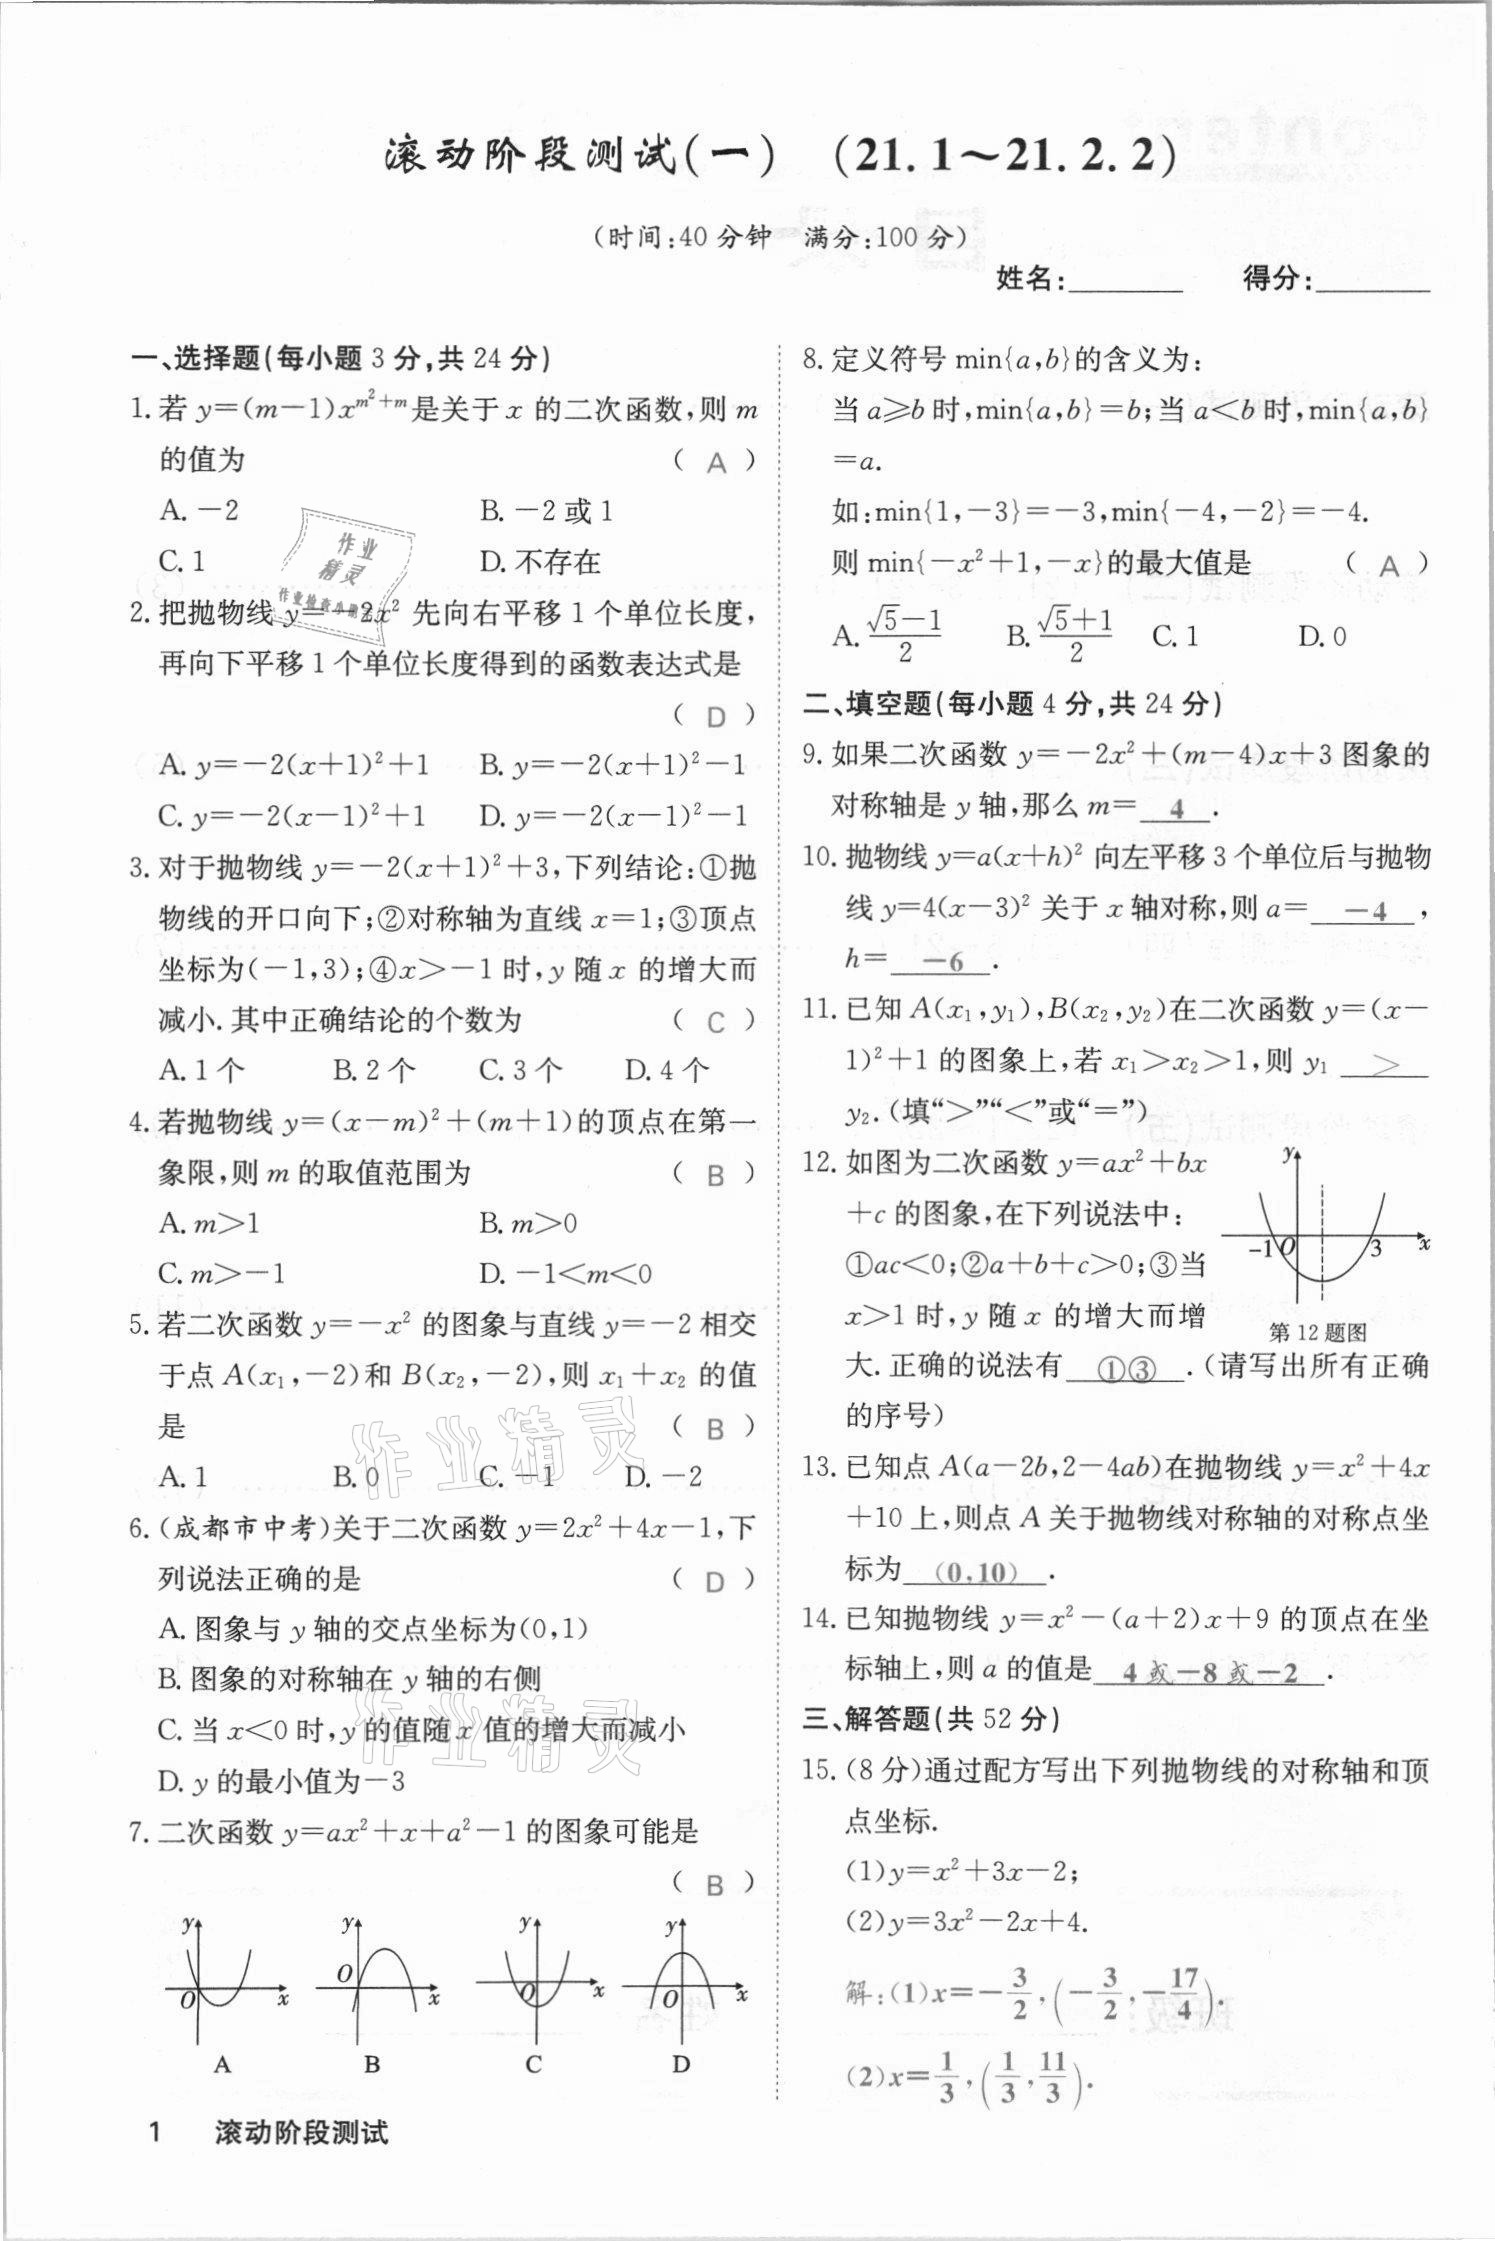 滚动阶段测试(一) (21.1～21.2.2)
(时间:40分钟 满分:100分)
姓名:________ 得分:________
一、选择题(每小题3分,共24分)
1. 若 y=(m-1)x^{m²+m}是关于 x 的二次函数,则 m
的值为 ( A )
A. -2 B. -2或1
C. 1 D. 不存在
2. 把抛物线 y=-2x² 先向右平移1个单位长度,
再向下平移1个单位长度得到的函数表达式是
( D )
A. y=-2(x+1)²+1 B. y=-2(x+1)²-1
C. y=-2(x-1)²+1 D. y=-2(x-1)²-1
3. 对于抛物线 y=-2(x+1)²+3,下列结论:①抛
物线的开口向下;②对称轴为直线 x=1;③顶点
坐标为(-1,3);④x>-1时,y随x的增大而
减小.其中正确结论的个数为 ( C )
A. 1个 B. 2个 C. 3个 D. 4个
4. 若抛物线 y=(x-m)²+(m+1)的顶点在第一
象限,则 m 的取值范围为 ( B )
A. m>1 B. m>0
C. m>-1 D. -1<m<0
5. 若二次函数 y=-x² 的图象与直线 y=-2 相交
于点 A(x₁,-2)和 B(x₂,-2),则 x₁+x₂ 的值
是 ( B )
A. 1 B. 0 C. -1 D. -2
6. (成都市中考)关于二次函数 y=2x²+4x-1,下
列说法正确的是 ( D )
A. 图象与 y 轴的交点坐标为(0,1)
B. 图象的对称轴在 y 轴的右侧
C. 当 x<0 时,y的值随x值的增大而减小
D. y的最小值为-3
7. 二次函数 y=ax²+x+a²-1的图象可能是
( B )
y O x y O x y O x y O x
A B C D
1 滚动阶段测试
8. 定义符号 min{a,b}的含义为:
当 a⩾b 时,min{a,b}=b;当 a<b 时,min{a,b}
=a.
如:min{1,-3}=-3,min{-4,-2}=-4.
则 min{-x²+1,-x}的最大值是 ( A )
A. (√5-1)/2 B. (√5+1)/2 C. 1 D. 0
二、填空题(每小题4分,共24分)
9. 如果二次函数 y=-2x²+(m-4)x+3图象的
对称轴是 y 轴,那么 m= 4 .
10. 抛物线 y=a(x+h)² 向左平移3个单位后与抛物
线 y=4(x-3)² 关于 x 轴对称,则 a= -4 ,
h= -6 .
11. 已知 A(x₁,y₁),B(x₂,y₂)在二次函数 y=(x-
1)²+1 的图象上,若 x₁>x₂>1,则 y₁ >
y₂.(填“>”“<”或“=”)
12. 如图为二次函数 y=ax²+bx
+c的图象,在下列说法中:
①ac<0;②a+b+c>0;③当
x>1 时,y 随 x 的增大而增
大.正确的说法有 ①③ .(请写出所有正确
的序号)
y -1 O 3 x
第12题图
13. 已知点 A(a-2b,2-4ab)在抛物线 y=x²+4x
+10上,则点 A 关于抛物线对称轴的对称点坐
标为 (0,10) .
14. 已知抛物线 y=x²-(a+2)x+9 的顶点在坐
标轴上,则 a 的值是 4或-8或-2 .
三、解答题(共52分)
15. (8分)通过配方写出下列抛物线的对称轴和顶
点坐标.
(1)y=x²+3x-2;
(2)y=3x²-2x+4.
解:(1)x=-3/2,(-3/2,-17/4).
(2)x=1/3,(1/3,11/3).
作业精灵
作业检查小助手
作业精灵
作业精灵